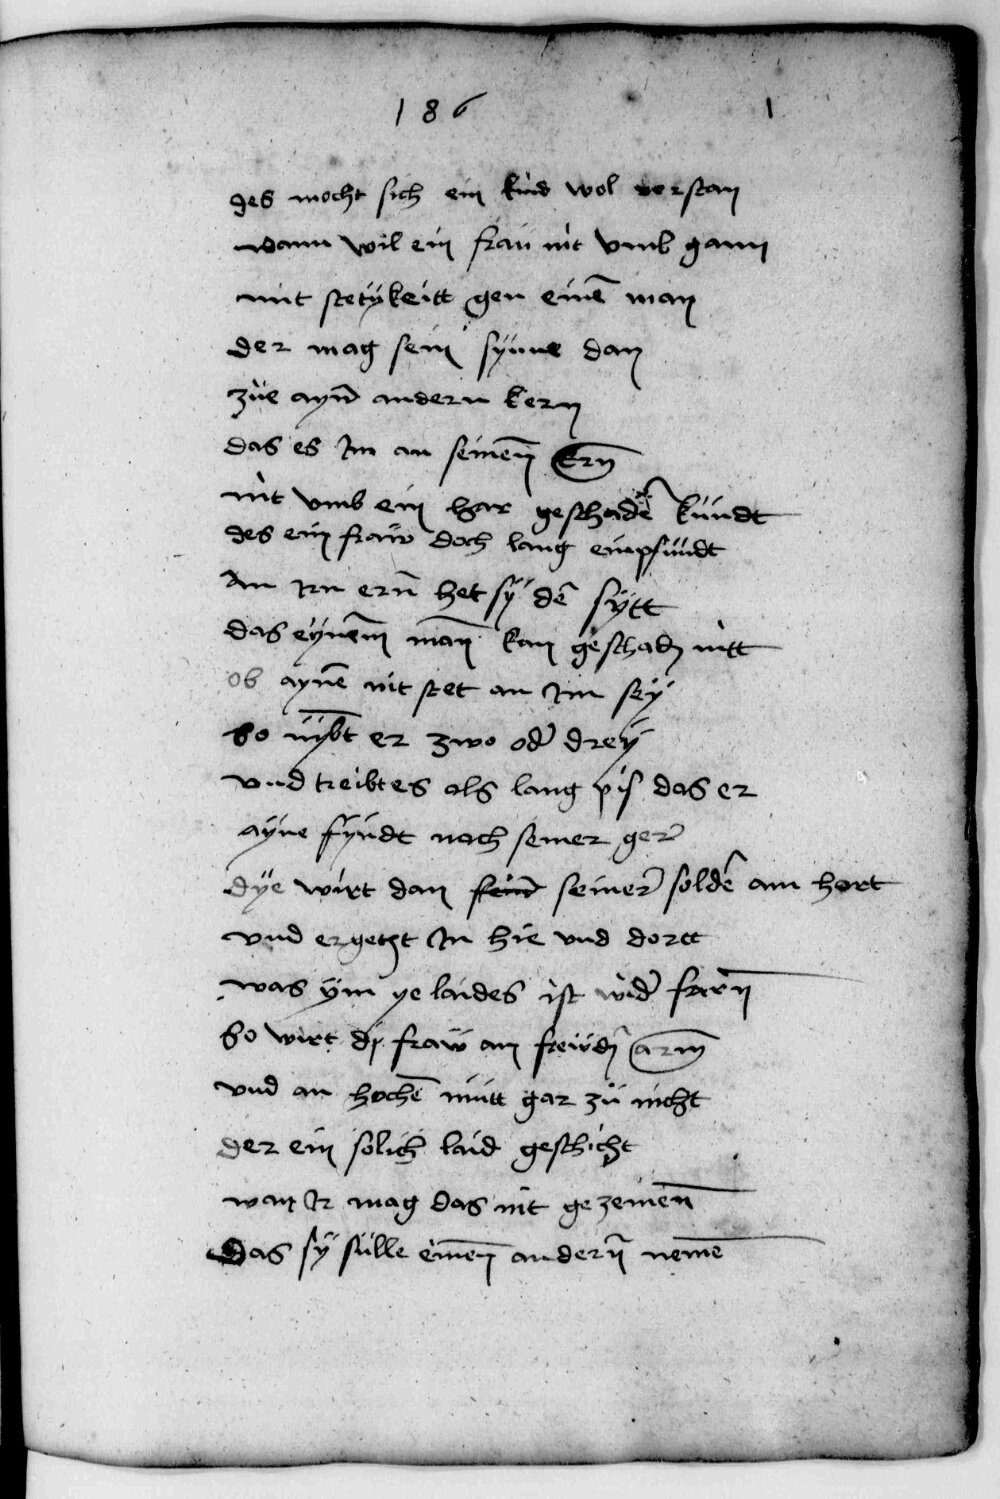 186 1
des mocht sich ein kind wol verstan
wann wil ein fraü nit vmb gann
mit stetÿkeitt gen einē man
der mag sein sÿnne dan
züe aÿn̄ andern kern
das es Im an seinen̄ ern̄
nit vmb ein har geschadē kündt
des ein fraw doch lang empfindt
An Irn ern̄ het sÿ dē sÿtt
das eÿnem̄ man̄ kan geschadn nitt
ob aÿnē nit stet an Im seÿ
so üÿbt er zwo od̄ dreÿ
vnd treibt es als lang pis das er
aÿne fÿndt nach seiner ger̄
dÿe wirt dan seiner̄ soldē am hort
vnd ergetzt In hie vnd dortt
was ÿm ye laides ist wid̄ farn̄
so wirt dj fraw an freüdn̄ arm̄
vnd an hochē mütt gar zü nicht
der ein solich laid geschicht
wan Ir mag das nit gezemen̄
Das sÿ sülle einen̄ andern̄ nemē